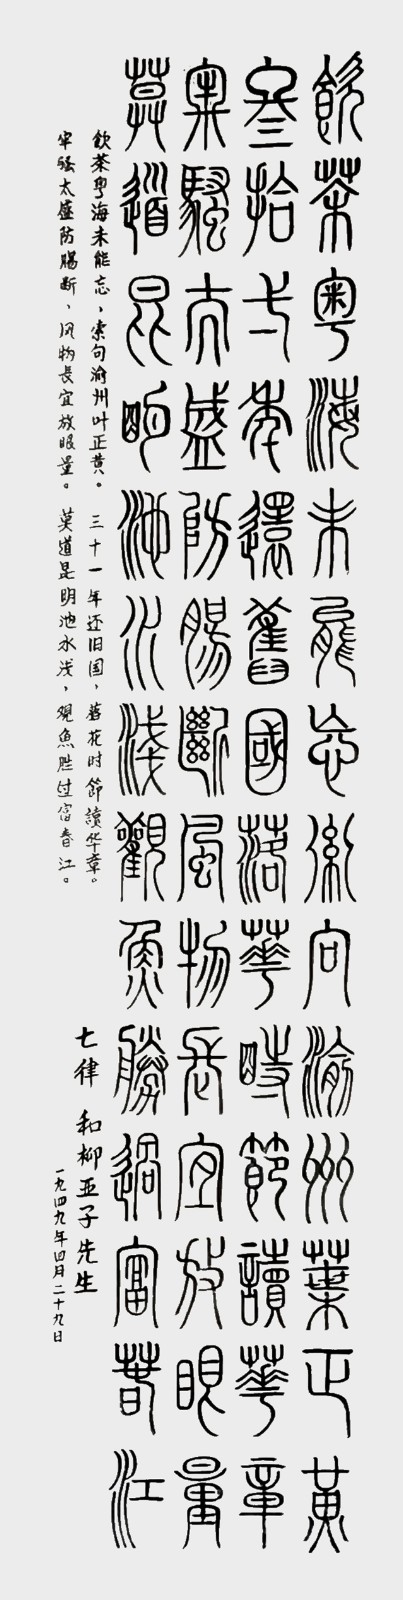 飲茶粵海未能忘索句渝州葉正黃
叁拾弌年還舊國落華時節讀華章
牢騷太盛防腸斷風物長宜放眼量
莫道昆明池水淺觀魚勝過富春江
飲茶粤海未能忘，索句渝州叶正黄。 三十一年还旧国，落花时節讀华章。
牢骚太盛防腸断，风物長宜放眼量。 莫道昆明池水浅，观魚胜过富春江。
七律 和柳亚子先生
一九四九年四月二十九日